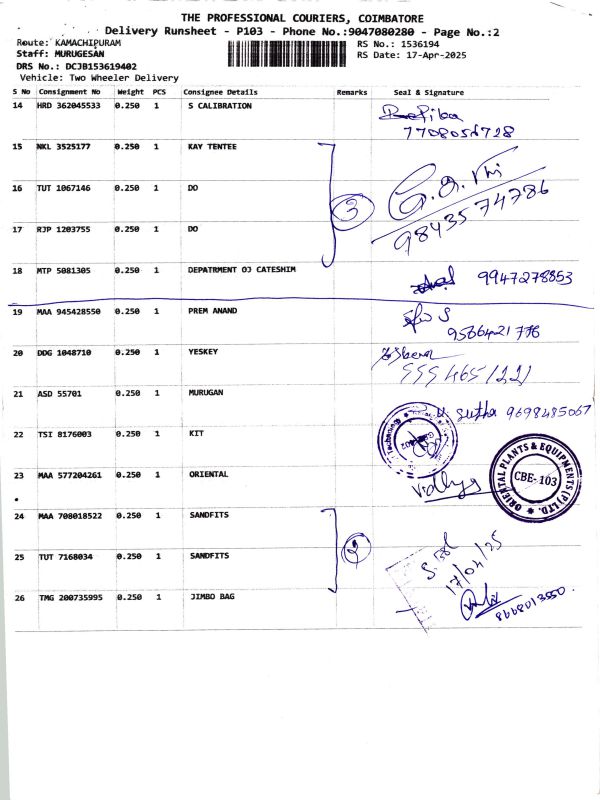 THE PROFESSIONAL COURIERS, COIMBATORE
Delivery Runsheet - P103 - Phone No.:9047080280 - Page No.:2
Route: KAMACHIPURAM
RS No.: 1536194
Staff: MURUGESAN
RS Date: 17-Apr-2025
DRS No.: DCJB153619402
Vehicle: Two Wheeler Delivery
S No Consignment No Weight PCS Consignee Details Remarks Seal & Signature
14 HRD 362045533 0.250 1 S CALIBRATION
7708056728
15 NKL 3525177 0.250 1 KAY TENTEE
16 TUT 1067146 0.250 1 DO
3
9843574786
17 RJP 1203755 0.250 1 DO
18 MTP 5081305 0.250 1 DEPATRMENT OJ CATESHIM
9947278853
19 MAA 945428550 0.250 1 PREM ANAND
9566421776
20 DDG 1048710 0.250 1 YESKEY
21 ASD 55701 0.250 1 MURUGAN
sutha 9698485067
22 TSI 8176003 0.250 1 KIT
23 MAA 577204261 0.250 1 ORIENTAL
Vidhya
ORIENTAL PLANTS & EQUIPMENTS (P) LTD.
CBE-103
24 MAA 708018522 0.250 1 SANDFITS
2
25 TUT 7168034 0.250 1 SANDFITS
17/04/25
26 TMG 200735995 0.250 1 JIMBO BAG
8668013550